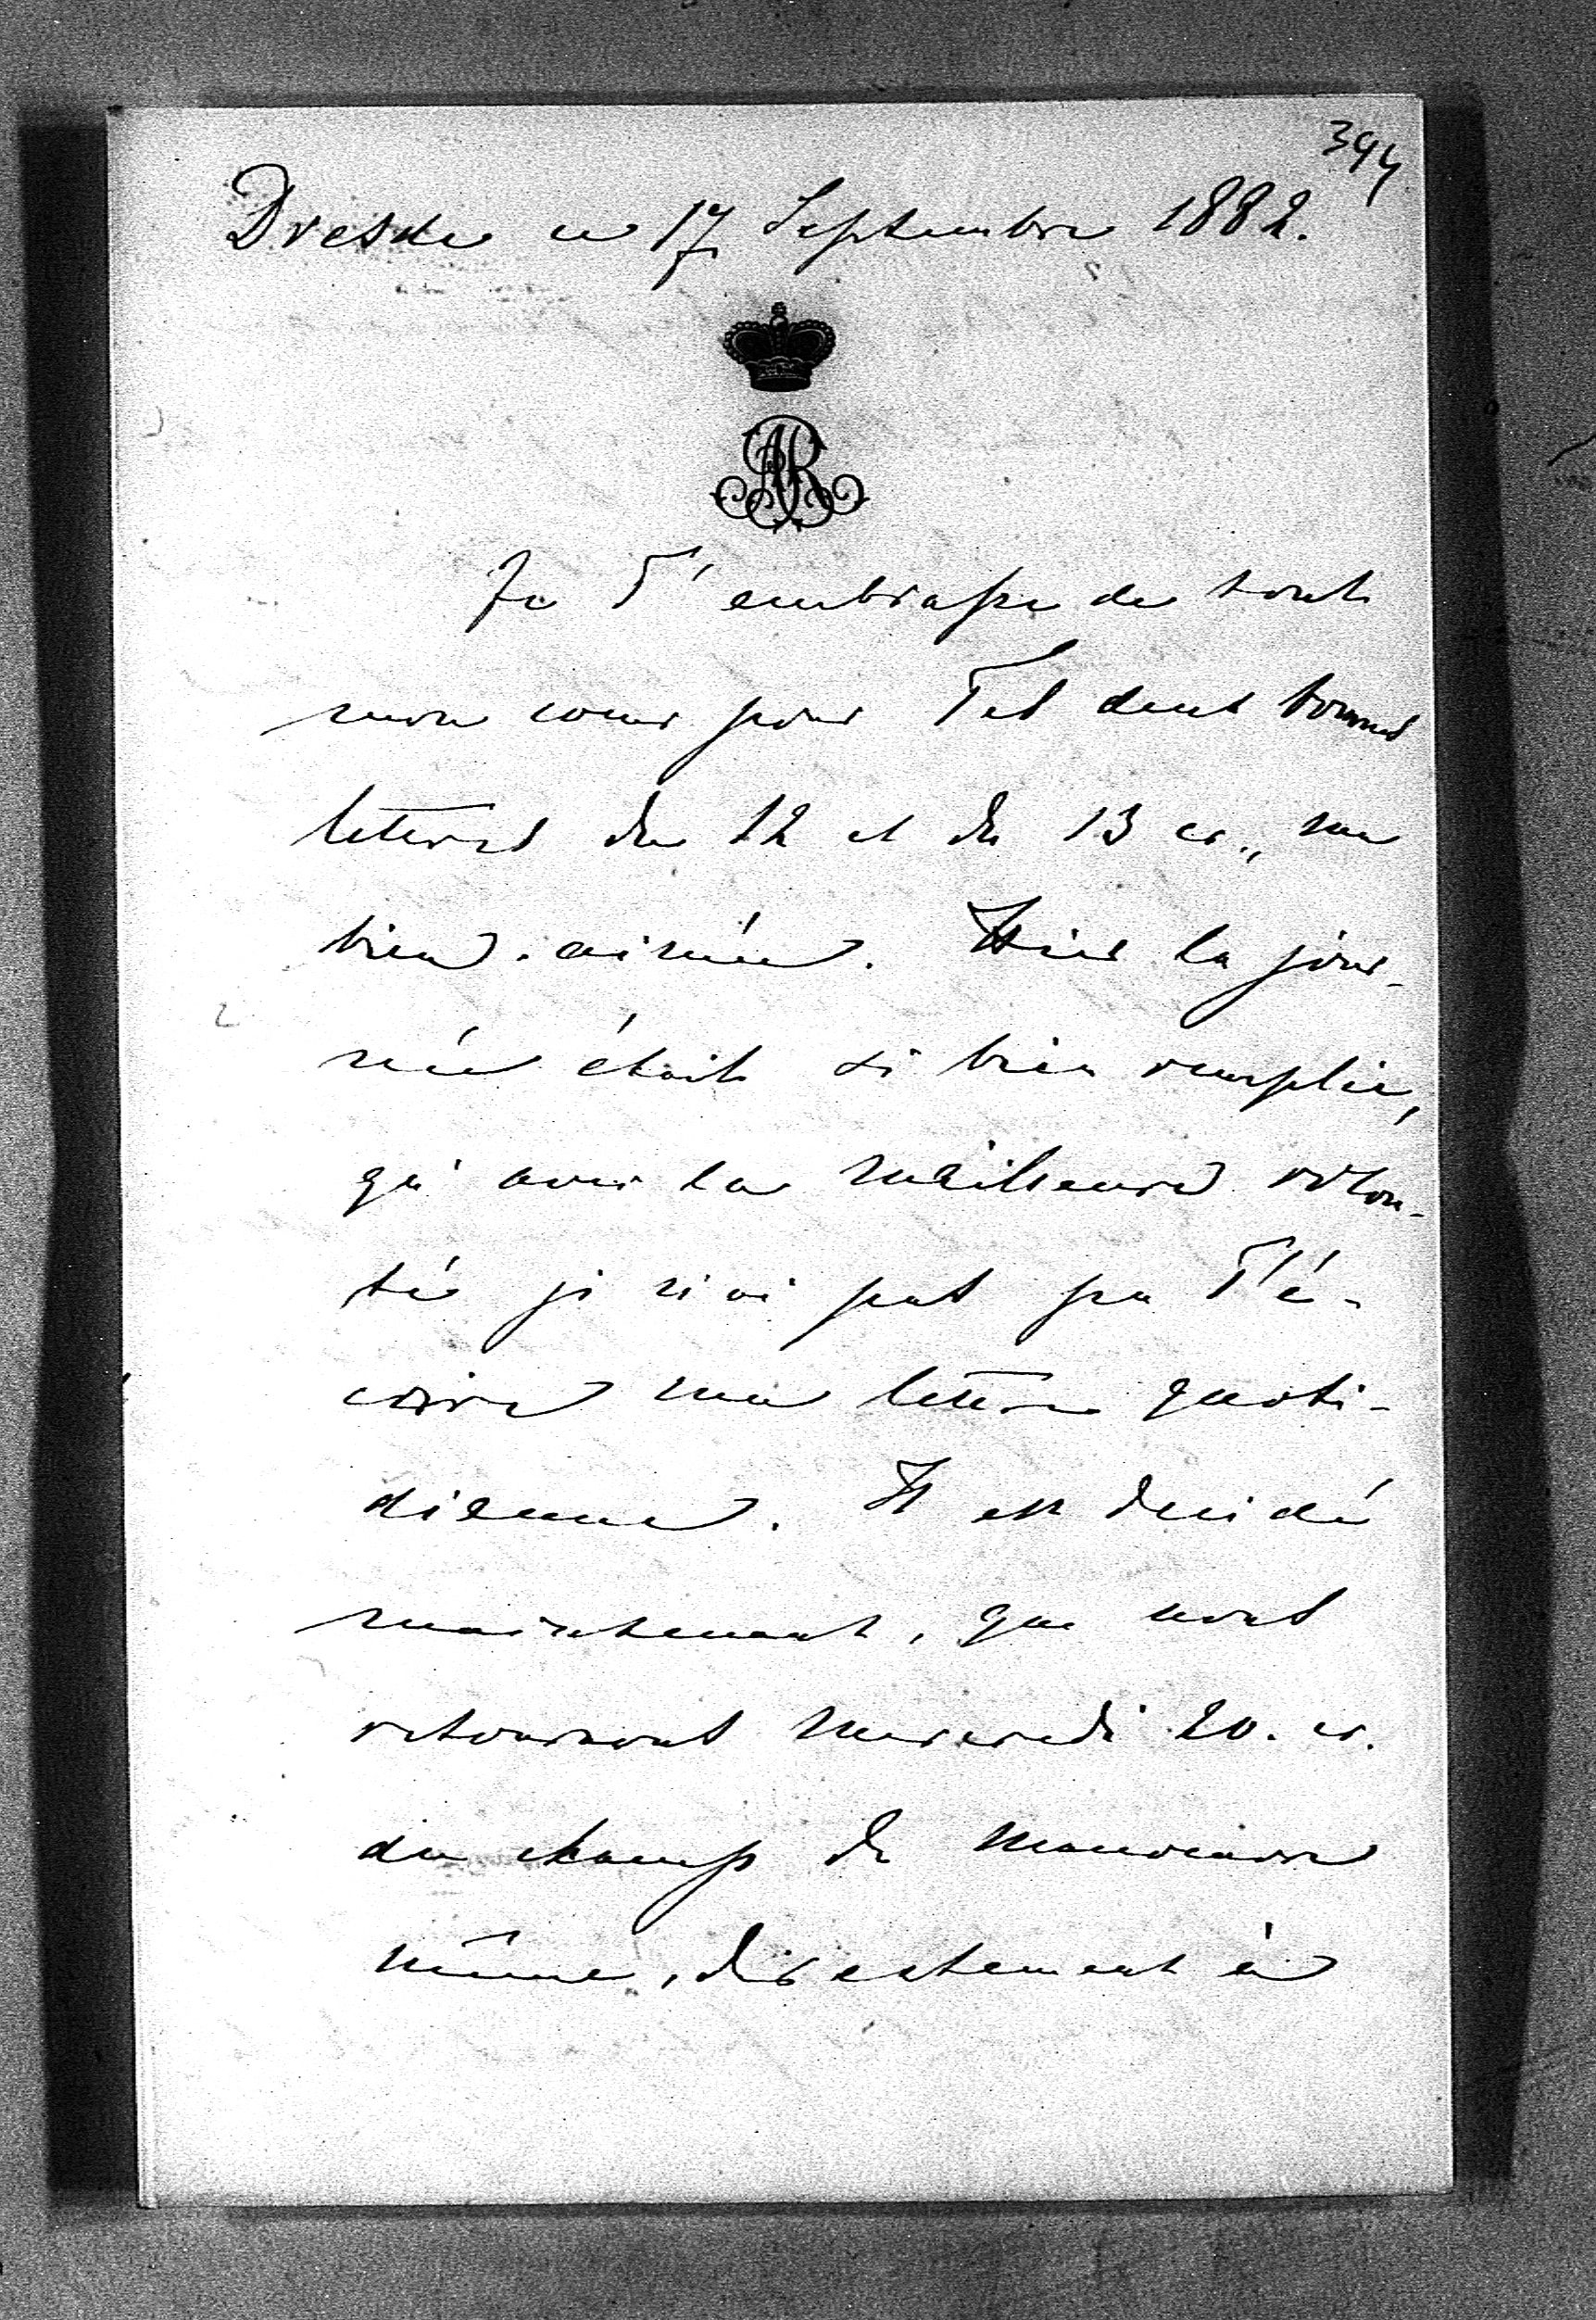 394
Dresde ce 17 Septembre 1882.
AR
Je T'embrasse de tout
mon coeur pour Tes deux bonnes
lettres du 12 et du 13 cr., ma
bien-aimée. Hier la jour-
née était si bien remplie,
qu'avec la meilleure volon-
té je n'ai pas pu T'é-
crire ma lettre quoti-
dienne. Il est décidé
maintenant, que nous
retournons mercredi 20. cr.
du champ de manoeuvre
même, directement à